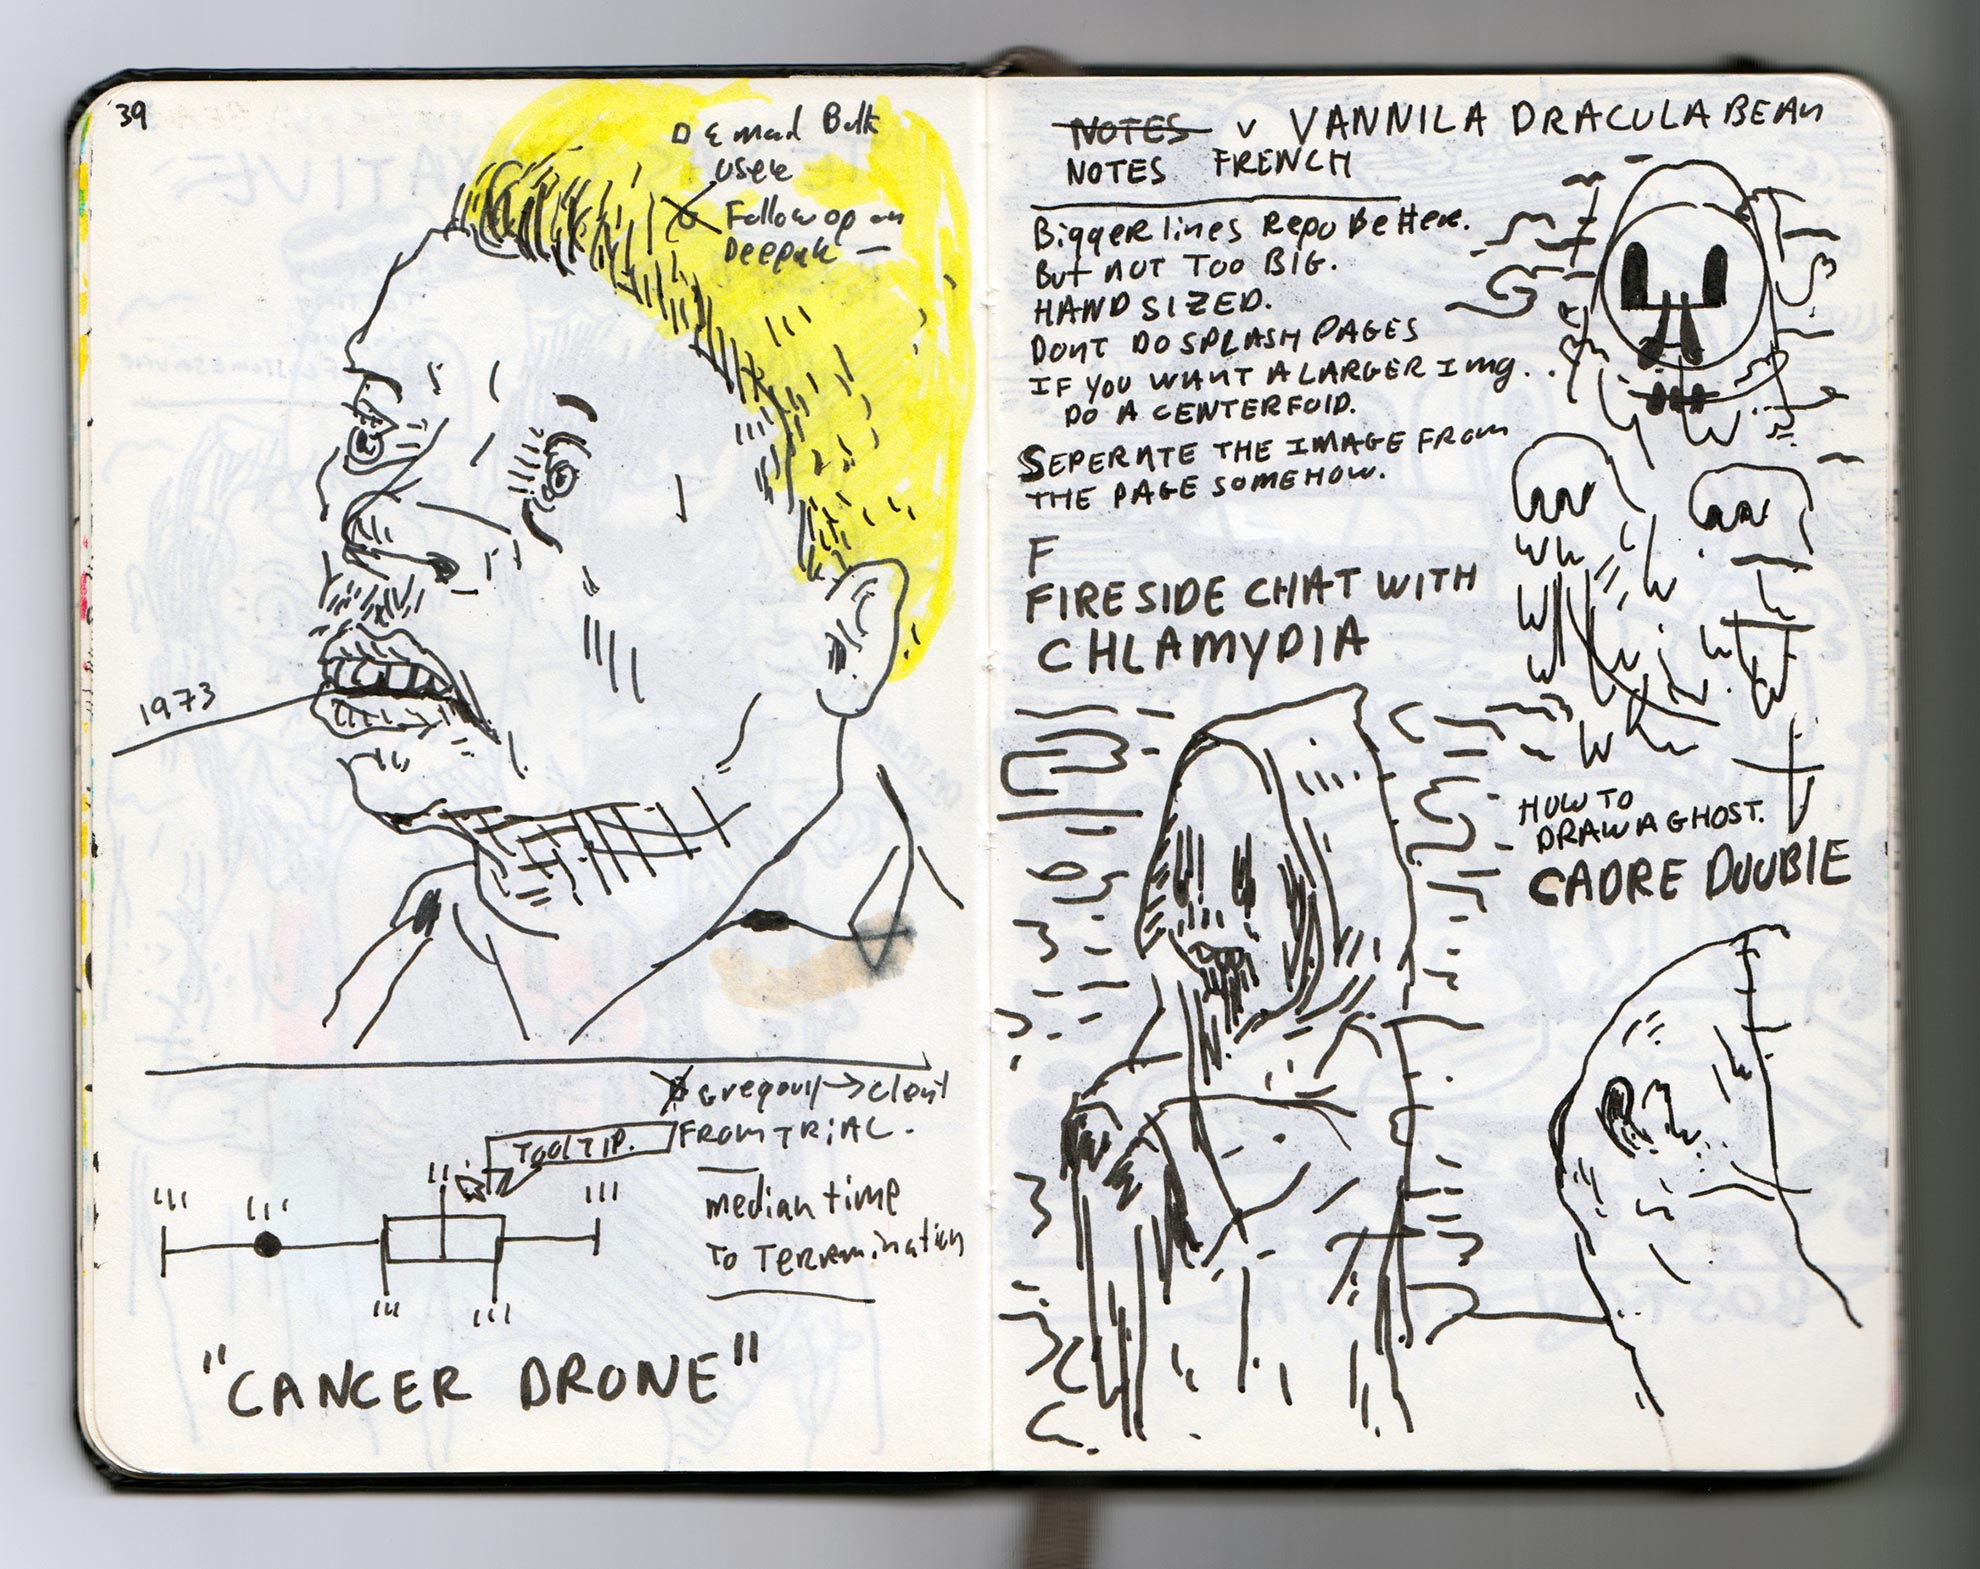 39
Email Bulk
user
Follow up on
Deepak —
1973
Gregory → client
FROM TRIAL.
TOOLTIP.
median time
To Terrmination
"CANCER DRONE"
NOTES v VANNILA DRACULA BEAN
NOTES FRENCH
Bigger lines Repo Better.
But not TOO BIG.
HAND SIZED.
DONT DO SPLASH PAGES
IF YOU WANT A LARGER Img.
DO A CENTERFOLD.
SEPERATE THE IMAGE FROM
THE PAGE SOMEHOW.
F
FIRESIDE CHAT WITH
CHLAMYDIA
HOW TO
DRAW A GHOST.
CADRE DOUBLE